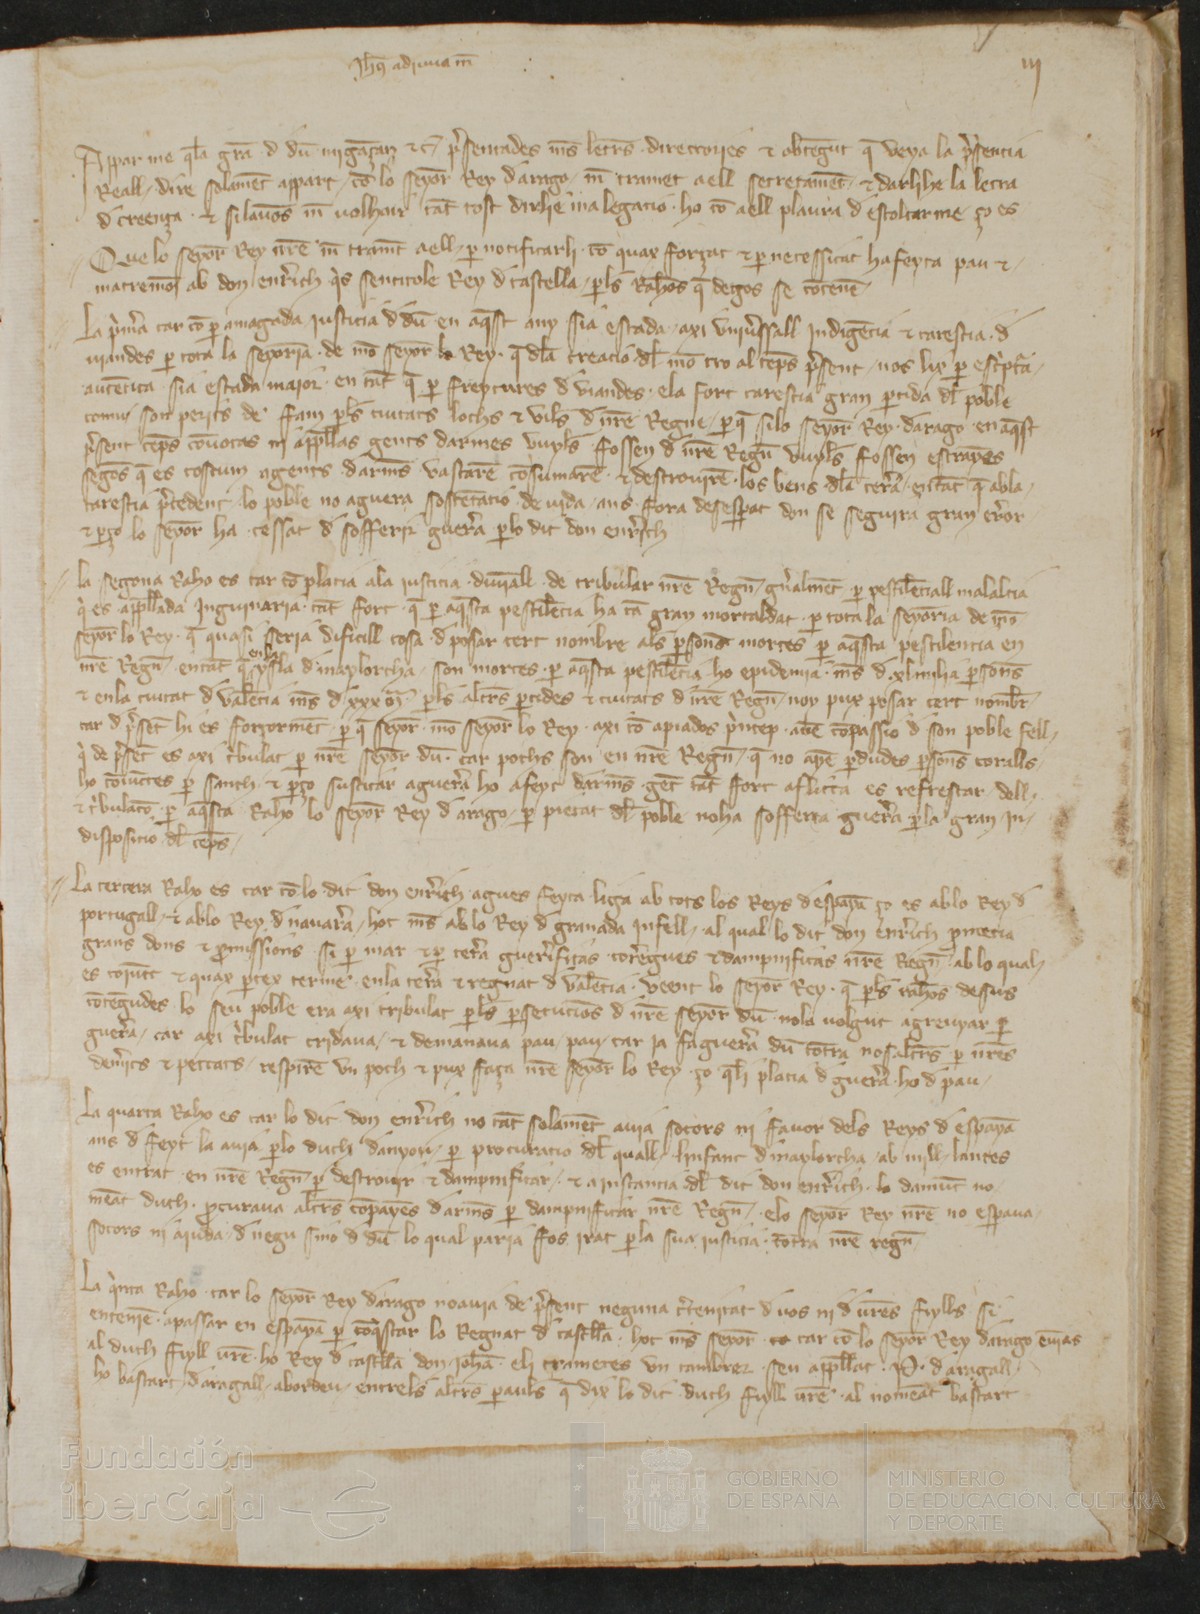 Jhs adiuua m
iij
Appar me q la gra d du migaçan et c presentades ms letrs directories et obtegut q veya la presencia
Reall dire solament appart co lo seyor Rey darago m tramet a ell secretament et darlhe la letra
d creença et si lauos m volhauir tat tost dirhe ma legacio ho co a ell plaura d escoltarme ço es
Que lo seyor Rey nre m tramt a ell per notificarli co quax forçat et per necessitat ha feyta pau et
matremoi ab don enrich qs sentitole Rey d castella pls Rahos q deios se contene
La prima car co per amagada justicia d du en aqst any sia estada axi vniuersall indigecia et carestia d
viandes per tota la seyoria de mo seyor lo Rey q dla creacio dl mo tro al teps present nos lix per escriptra
autetica sia estada maior en tat q per freytures d viandes ela fort carestia gran partida dl poble
comu son perits de fam pls ciutats lochs et vils d nre Regne per q si lo seyor Rey darago en aqst
present teps couocas ni appllas gents darmes vuyls fossen d nre Regn vuyls fossen estrayes
segos q es costum agents darms vastare cosumare et destrouire los bens dla terra en tat q ab la
carestia precedent lo poble no aguera sostetacio de vida ans fora desesperat don se seguira gran error
et perço lo seyor ha cessat d sofferir guerra per lo dit don enrich
La segona Raho es car co placia ala justicia diuiall de tribular nre Regn gnalmet per pestileciall malaltia
qi es appllada Inguinaria tat fort q per aqsta pestilecia ha ta gran mortaldat per tota la seyoria de mo
seyor lo Rey q quasi seria dificill cosa d posar cert nombre als persones mortes per aqsta pestilencia en
nre Regn en tat q enla ysla d maylorcha son mortes per aqsta pestilecia ho epidemia ms d xl milia persons
et en la ciutat d valecia ms d xxx m pls altrs partides et ciutats d nre Regn noy pux posar cert nombr
car d preset hi es forçormet per q seyor mo seyor lo Rey axi co apiados princep aue copassio d son poble fell
qi de preset es axi tribulat per nre seyor du car pochs son en nre Regn q no ape perdudes persons coralls
ho coiuctes per sanch et perço suscitar aguerra ho a feyt darms get tat fort aflicta es refrescar dell
et tribulato per aqsta Raho lo seyor Rey d arago per pietat dl poble no ha sofferta guerra per la gran in
disposicio dl teps
La tercera Raho es car co lo dit don enrich agues feyta liga ab tots los Reys d espaya ço es ab lo Rey d
portugall et ab lo Rey d nauarra hoc ms ab lo Rey d granada infell al qual lo dit don enrich prmetia
grans dons et promissions si per mar et per terra guerrificas corregues et dampnificas nre Regn ab lo qual
es coiuct et quax pertex terme en la terra et regnat d valecia veent lo seyor Rey q pls rahos dessus
cotegudes lo seu poble era axi tribulat pls persecucios d nre seyor du nola volgut agreuyar per
guerra car axi tribulat cridaua et demanaua pau pau car ja fa guerra du contra nosaltrs per nres
demerits et peccats respire vn poch et pux faça nre seyor lo Rey ço qli placia d guerra ho d pau
La quarta Raho es car lo dit don enrich no tat solamet auia socors ni fauor dels Reys d espaya
ans d feyt la auia per lo duch danyou per procuracio dl quall linfant d maylorcha ab mill lances
es entrat en nre Regn per destrouir et dampnificar et a instancia dl dit don enrich lo damut no
meat duch procuraua altrs copayes d arms per dampnificar nre Regn e lo seyor Rey nre no esperaua
socors ni aiuda d negu sino d du lo qual paria fos irat per la sua justicia cotra nre regn
La qinta Raho car lo seyor Rey darago no auia de present neguna certenitat d vos ni d vres fiylls si
entenie a passar en espaya per coqistar lo Regnat d castlla hoc ms seyor car co lo seyor Rey darago emas
al duch fiyll vre ho Rey d castlla don joha eli trametes vn cambrer seu appllat P. d aragall
ho bastart daragall abordeu entrels altrs paauls q dix lo dit duch fiyll vre al nomeat bastart
Fundación
iberCaja
GOBIERNO
DE ESPAÑA
MINISTERIO
DE EDUCACIÓN, CULTURA
Y DEPORTE